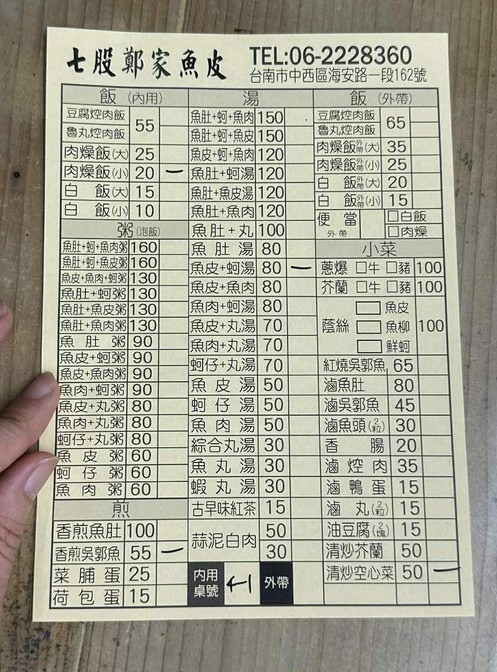 七股鄭家魚皮 TEL:06-2228360
台南市中西區海安路一段162號
飯(內用)
豆腐焢肉飯
魯丸焢肉飯 55
肉燥飯(大) 25
肉燥飯(小) 20 一
白飯(大) 15
白飯(小) 10
粥(泡飯)
魚肚+蚵+魚肉粥 160
魚肚+蚵+魚皮粥 160
魚皮+魚肉+蚵粥 130
魚肚+蚵粥 130
魚肚+魚皮粥 130
魚肚+魚肉粥 130
魚肚粥 90
魚皮+蚵粥 90
魚皮+魚肉粥 90
魚肉+蚵粥 90
魚皮+丸粥 80
魚肉+丸粥 80
蚵仔+丸粥 80
魚皮粥 60
蚵仔粥 60
魚肉粥 60
煎
香煎魚肚 100
香煎吳郭魚 55 一
菜脯蛋 25
荷包蛋 15
湯
魚肚+蚵+魚肉 150
魚肚+蚵+魚皮 150
魚皮+蚵+魚肉 120
魚肚+蚵湯 120
魚肚+魚皮湯 120
魚肚+魚肉 120
魚肚+丸 100
魚肚湯 80
魚皮+蚵湯 80 一
魚皮+魚肉 80
魚肉+蚵湯 80
魚皮+丸湯 70
魚肉+丸湯 70
蚵仔+丸湯 70
魚皮湯 50
蚵仔湯 50
魚肉湯 50
綜合丸湯 30
魚丸湯 30
蝦丸湯 30
古早味紅茶 15
蒜泥白肉 50
30
內用桌號 外帶
飯(外帶)
豆腐焢肉飯
魯丸焢肉飯 65
肉燥飯外帶(大) 35
肉燥飯外帶(小) 25
白飯外帶(大) 20
白飯外帶(小) 15
便當外帶 □白飯
□肉燥
小菜
蔥爆 □牛 □豬 100
芥蘭 □牛 □豬 100
蔭絲 □魚皮
□魚柳 100
□鮮蚵
紅燒吳郭魚 65
滷魚肚 80
滷吳郭魚 45
滷魚頭 30
香腸 20
滷焢肉 35
滷鴨蛋 15
滷丸 15
油豆腐 15
清炒芥蘭 50
清炒空心菜 50 一